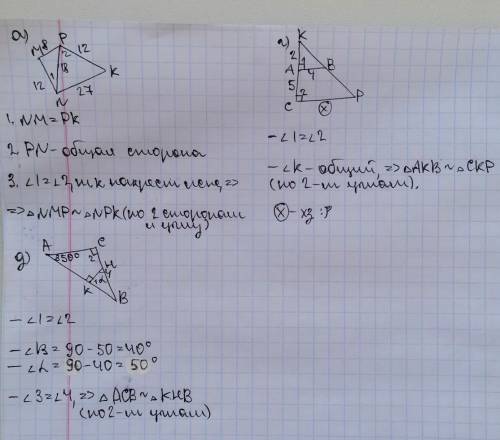 а)
P
M 8 2 12
12 1 18 K
N 27
1. NM = PK
2 PN - общая сторона
3. ∠1=∠2, т.к накрест леж, =>
=> △NMP ~ △NPK (по 2 сторонам
и углу)
г)
K
2
A 1 B
4
5
C 2 P
x
- ∠1=∠2
- ∠K - общий, => △AKB ~ △CKP
(по 2-м углам).
x - хз :P
д)
A C
3 50° 2
H
K 1 4
B
- ∠1=∠2
- ∠B = 90 - 50 = 40°
- ∠4 = 90 - 40 = 50°
- ∠3=∠4, => △ACB ~ △KHB
(по 2-м углам)